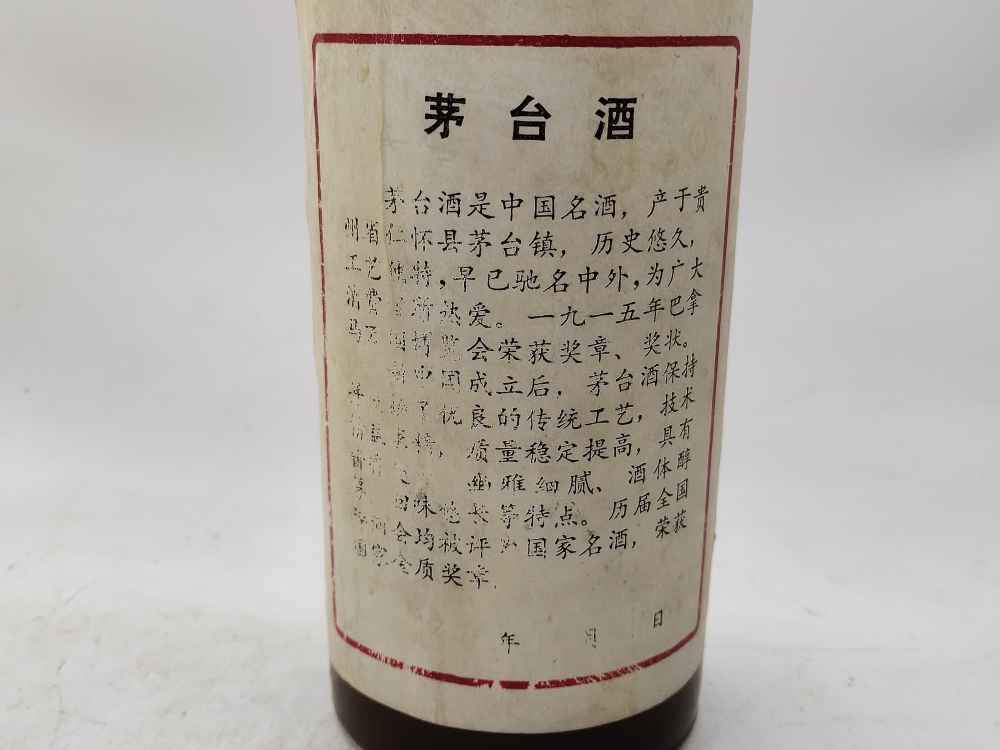 茅台酒
茅台酒是中国名酒，产于贵
州省仁怀县茅台镇，历史悠久，
工艺独特，早已驰名中外，为广大
消费者所热爱。一九一五年巴拿
马万国博览会荣获奖章、奖状。
新中国成立后，茅台酒保持
并发扬了优良的传统工艺，技术
精，质量稳定提高，具有
幽雅细腻、酒体醇
回味悠长等特点。历届全国
会均被评为国家名酒，荣获
国家金质奖章.
年 月 日